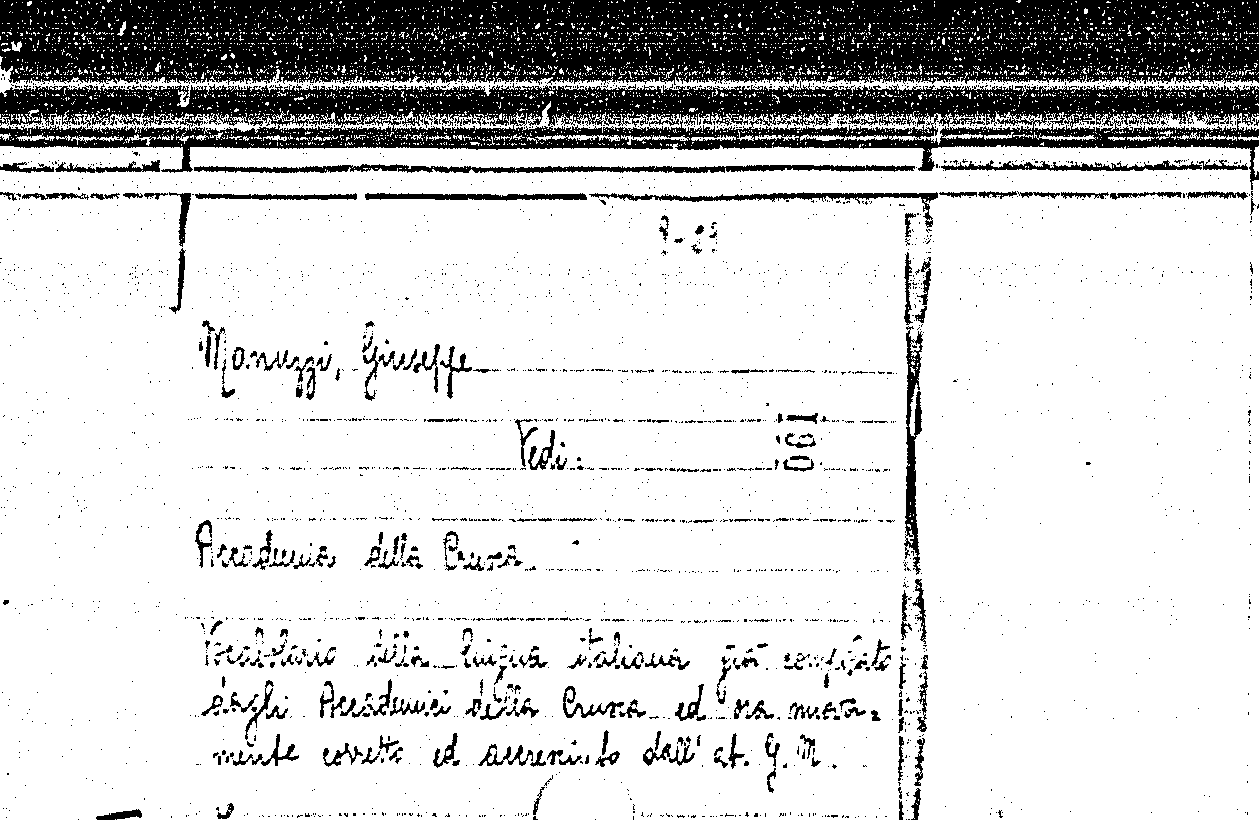 Manuzzi, Giuseppe
Vedi:
190
Accademia della Crusca
Vocabolario della lingua italiana già compilato
dagli Accademici della Crusca ed ora nuova=
mente corretto ed accresciuto dall' ab. G. M.